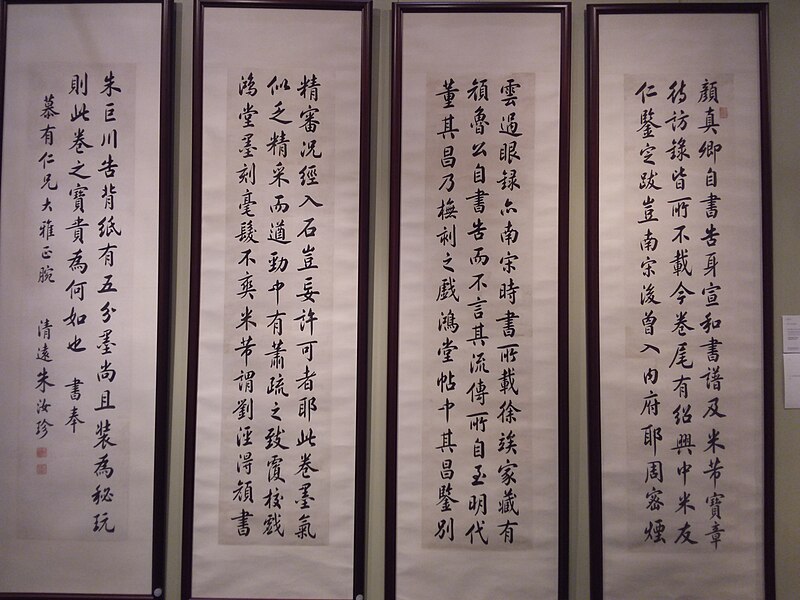 顏真卿自書告身宣和書譜及米芾寶章
待訪錄皆所不載今卷尾有紹興中米友
仁鑒定跋豈南宋後曾入內府耶周密煙
雲過眼録亦南宋時書所載徐竢家藏有
顏魯公自書告而不言其流傳所自至明代
董其昌乃橅刻之戲鴻堂帖中其昌鑒別
精審况經入石豈妄許可者耶此卷墨氣
似乏精采而遒勁中有蕭疏之致覆校戲
鴻堂墨刻毫髮不爽米芾謂劉涇得顏書
朱巨川告背紙有五分墨尚且装為秘玩
則此卷之寶貴為何如也 書奉
慕有仁兄大雅正腕 清遠朱汝珍